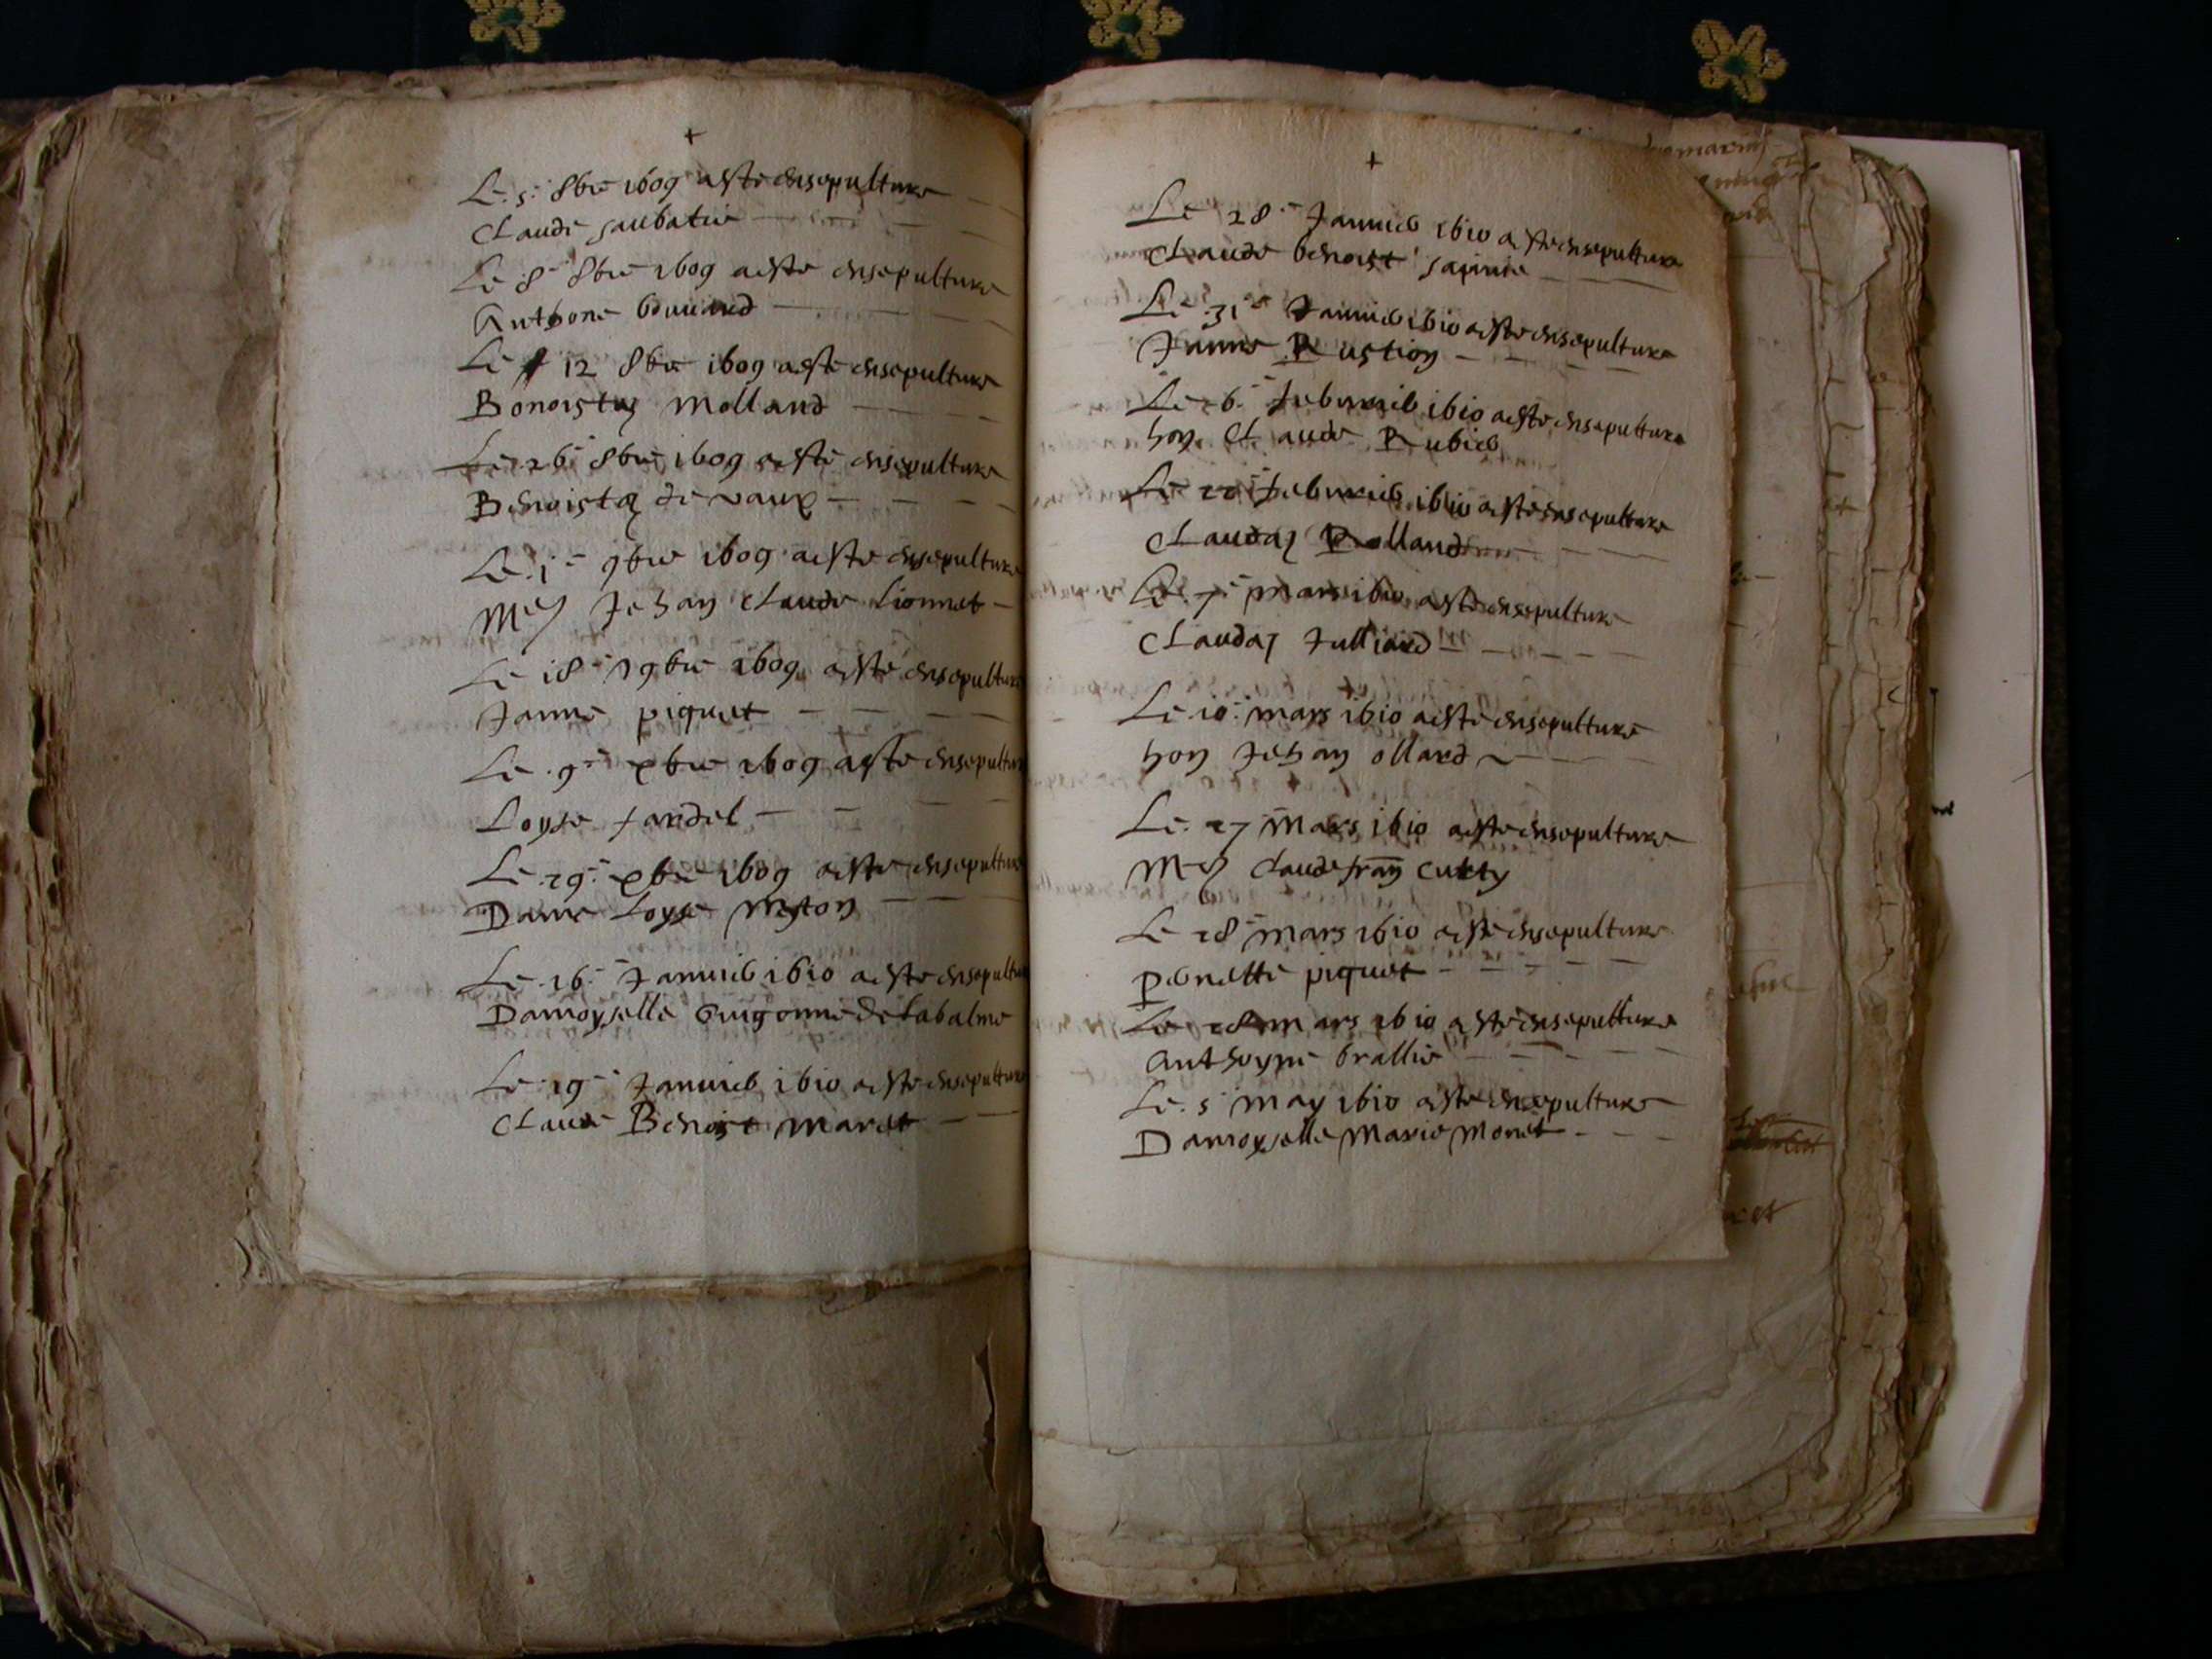 +
Le 5e 8bre 1609 a esté ensepulturé
Claude
Le 8e 8bre 1609 a esté ensepulturé
Anthone Bouvard
Le 12 8bre 1609 a esté ensepulturé
Benoistaz Molland
Le 26e 8bre 1609 a esté ensepulturé
Benoistaz de vaux
Le 1e 9bre 1609 a esté ensepulturé
Mes Jehan Claude Lionnet
Le 18e 9bre 1609 a esté ensepulturé
Janne piquet
Le 9e xbre 1609 a esté ensepulturé
Loyse fardel
Le 29e xbre 1609 a esté ensepulturé
Dame Loyse
Le 16e Janvier 1610 a esté ensepulturé
Damoyselle Guigonne de la balme
Le 19e Janvier 1610 a esté ensepulturé
Claude Benoist Maret
+
Le 28e Janvier 1610 a esté ensepulturé
Claude benoist
Le 31e Janvier 1610 a esté ensepulturé
Janne Rustion
Le 6e febvrier 1610 a esté ensepulturé
hon Claude Rubier
Le 22e febvrier 1610 a esté ensepulturé
Claudaz Rolland
Le 7e mars 1610 a esté ensepulturé
Claudaz Julliard
Le 10e mars 1610 a esté ensepulturé
hon Jehan ollard
Le 27 Mars 1610 a esté ensepulturé
Mes Claude fran
Le 28e mars 1610 a esté ensepulturé
Pernette piquet
Le 28 mars 1610 a esté ensepulturé
Anthoyne
Le 5e may 1610 a esté ensepulturé
Damoyselle Marie Monet